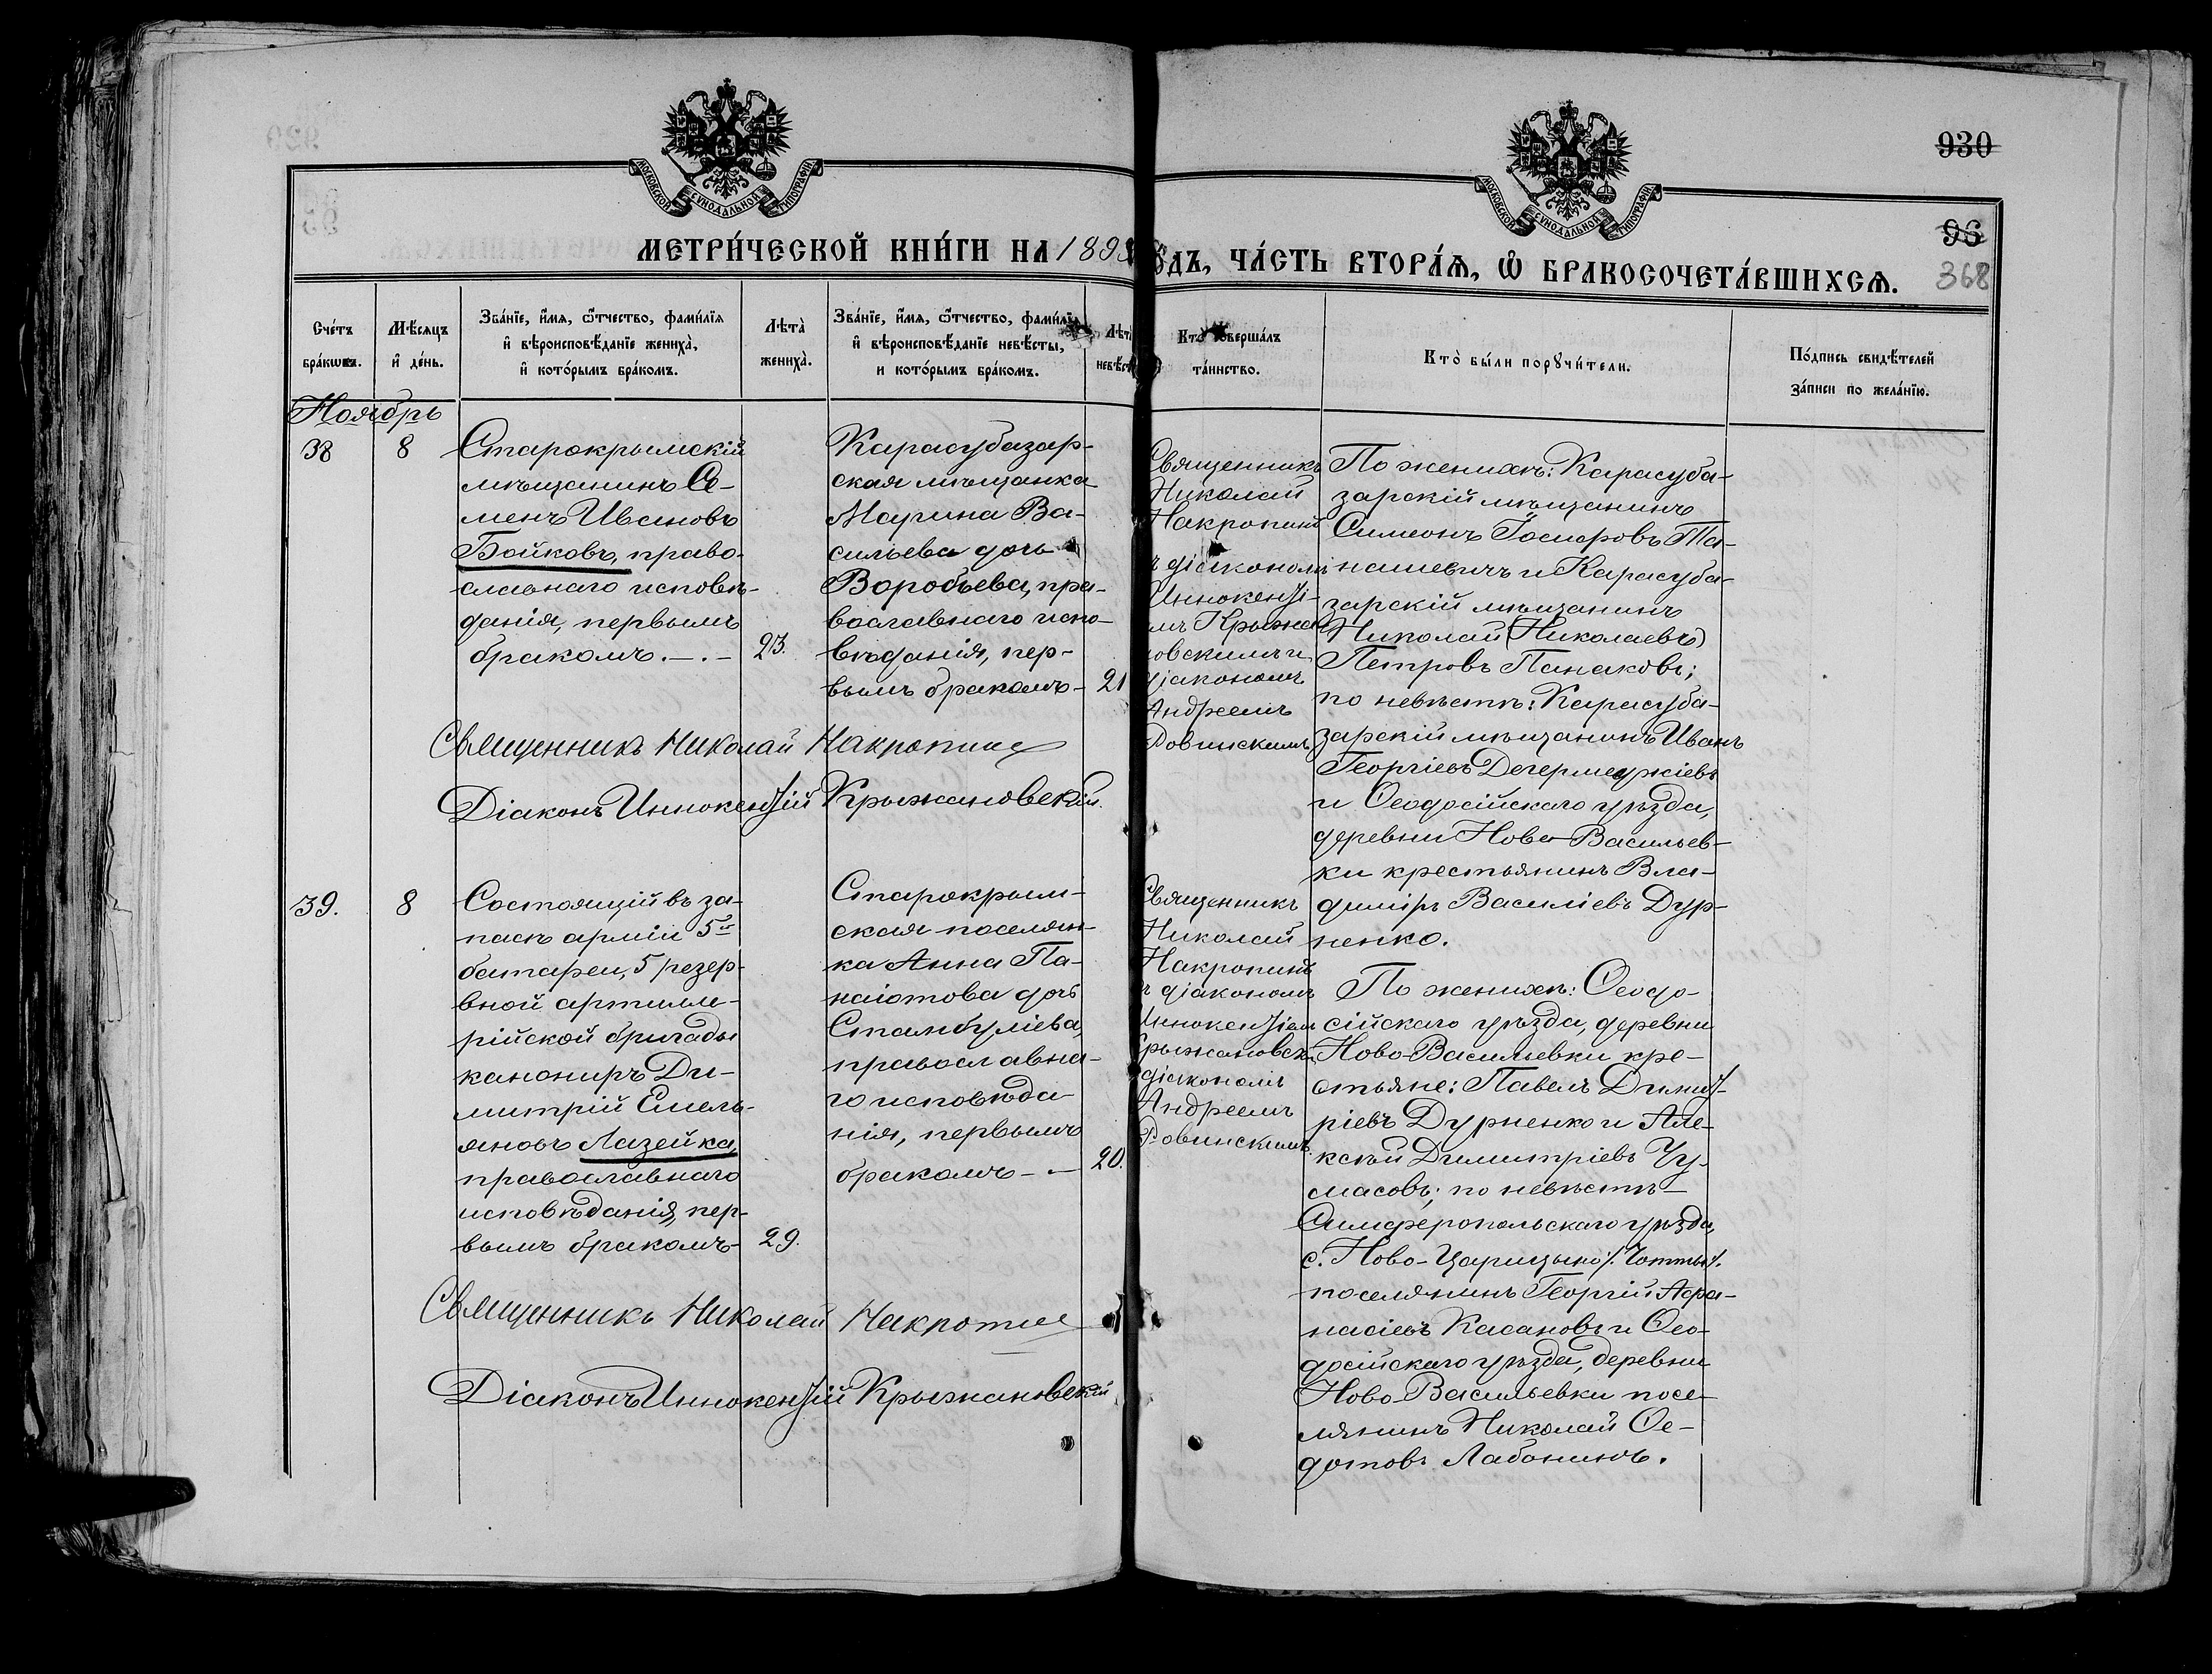 930
96
368
МОСКОВСКОЙ СѴНОДАЛЬНОЙ ТИПОГРАФІИ
МОСКОВСКОЙ СѴНОДАЛЬНОЙ ТИПОГРАФІИ
МЕТРИ́ЧЕСКОЙ КНИ́ГИ НА 189
ГѠДЪ, ЧА́СТЬ ВТОРА́Ѧ, Ѽ БРАКОСОЧЕТА́ВШИХСѦ.
Счéтъ бра́кωвъ.
Мѣ́сяцъ и҆ де́нь.
Зва́нїе, и҆́мя, ѻ҆́тчество, фами́лїя и҆ вѣроисповѣ́данїе жениха̀, и҆ кото́рымъ бра́комъ.
Лѣта̀ жениха̀.
Зва́нїе, и҆́мя, ѻ҆́тчество, фами́лїя и҆ вѣроисповѣ́данїе невѣ́сты, и кото́рымъ бра́комъ.
Лѣта̀ невѣ́сты
Кто̀ соверша́лъ та́инство.
Кто̀ бы́ли порꙋчи́тели.
По́дпись свидѣ́телей за́писи по жела́нїю.
Ноябрь
38
8
Старокрымскій
мѣщанинъ Се-
менъ Ивановъ
Бойковъ, право-
славнаго исповѣ-
данія, первымъ
бракомъ. — . —
23.
Карасубазар-
ская мѣщанка
Марина Ва-
сильева дочь
Воробьева, пра-
вославнаго испо-
вѣданія, пер-
вымъ бракомъ —
21
Священникъ
Николай
Накропинъ
съ діакономъ
Иннокенті-
емъ Крыжа-
новскимъ и
діакономъ
Андреемъ
Ровинскимъ
По женихѣ: Карасуба-
зарскій мѣщанинъ
Симеонъ Іосифовъ Та-
нашевичъ и Карасуба-
зарскій мѣщанинъ
Николай (Николаевъ)
Петровъ Панаковъ;
по невѣстѣ: Карасуба-
зарскій мѣщанинъ Иванъ
Георгіевъ Дегермеджіевъ
и Ѳеодосійскаго уѣзда,
деревни Ново-Васильев-
ки крестьянинъ Вла-
диміръ Василіевъ Дур-
ненко.
Священникъ Николай Накропинъ
Діаконъ Иннокентій Крыжановскій.
39.
8
Состоящій въ за-
пасѣ арміи 5й
батареи, 5 резер-
вной артилле-
рійской бригады
канониръ Ди-
митрій Емель-
яновъ Лазейка,
православнаго
исповѣданія, пер-
вымъ бракомъ —
29.
Старокрым-
ская поселян-
ка Анна Па-
наіотова дочь
Стамбуліева,
православна-
го исповѣда-
нія, первымъ
бракомъ — —
20.
Священникъ
Николай
Накропинъ
съ діакономъ
Иннокентіем
Крыжановск.
діакономъ
Андреемъ
Ровинскимъ
По женихѣ: Ѳеодо-
сійскаго уѣзда, деревни
Ново-Васильевки кре-
стьяне: Павелъ Димит-
ріевъ Дурненко и Але-
ксѣй Димитріевъ Чу-
масовъ; по невѣстѣ —
Симферопольскаго уѣзда,
с. Ново-Царицыно /. Чотты /.
поселянинъ Георгій Аѳа-
насіевъ Касановъ и Ѳео-
досійскаго уѣзда, деревни
Ново-Васильевки посе-
лянинъ Николай Ѳе-
дотовъ Лабонинъ.
Священникъ Николай Накропинъ
Діаконъ Иннокентій Крыжановскій